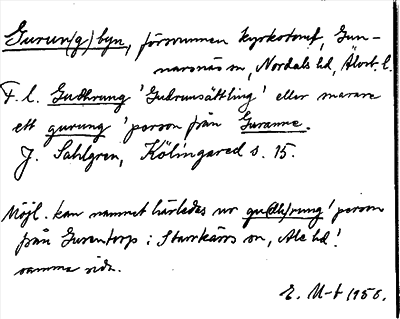 Gurun(g)byn, försvunnen kyrkotomt, Gun-
narsnäs sn, Nordals hd, Älvsb. l.
F. l. Gudhrung 'Gudrunsättling' eller snarare
ett gurung 'person från Guranne.
J. Sahlgren, Kölingared s. 15.
Möjl. kan namnet härledas ur gu(dh)rung 'person
från Gurentorp i Starrkärrs sn, Ale hd'.
samma sida.
E. M-t 1956.